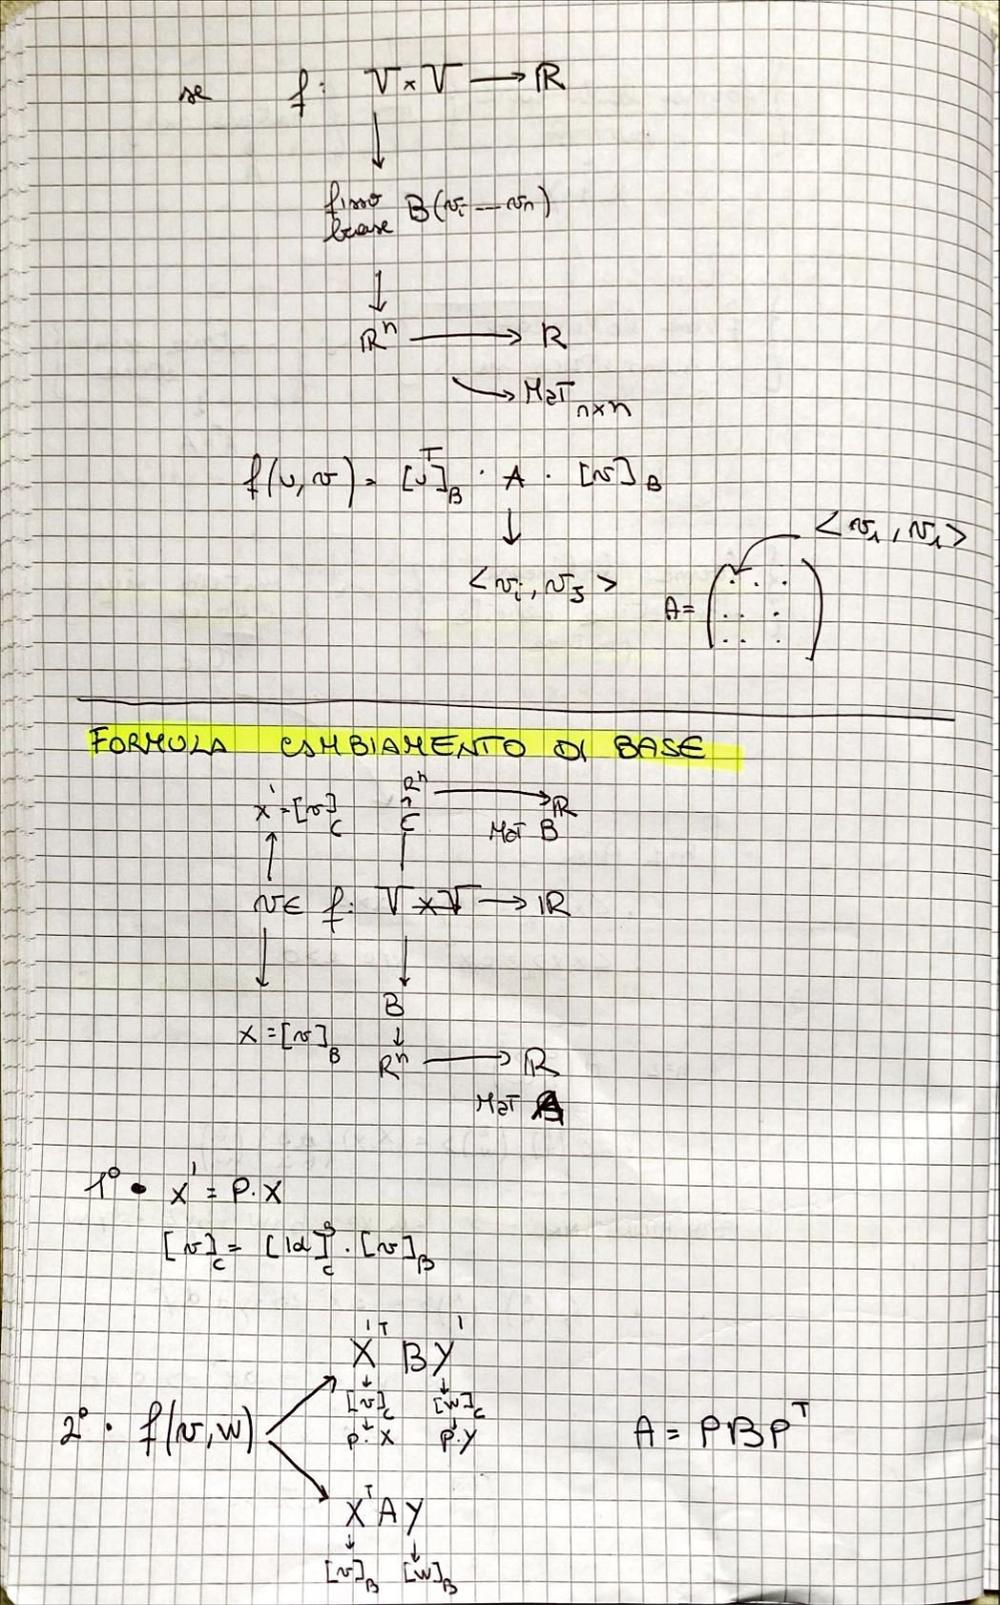 se f: V×V → R
↓
fisso B(vi --- vn)
base
↓
Rⁿ → R
→ MaT n×n
f(u,v) = [uᵀ]B · A · [v]B
↓
<v1, v1>
<vi, vj> A = ( . . . )
FORMULA CAMBIAMENTO DI BASE
x' = [v]C Rⁿ → R
↑ C MaT B
v ∈ f: V×V → R
↓ ↓
B
x = [v]B ↓
Rⁿ → R
MaT A
1° • x' = P·x
[v]C = [Id]ᴮC · [v]B
X'ᵀ B Y'
↓ ↓
[v]C [w]C
↓ ↓
P·X P·Y
2° · f(v,w) A = PBPᵀ
XᵀAY
↓ ↓
[v]B [w]B